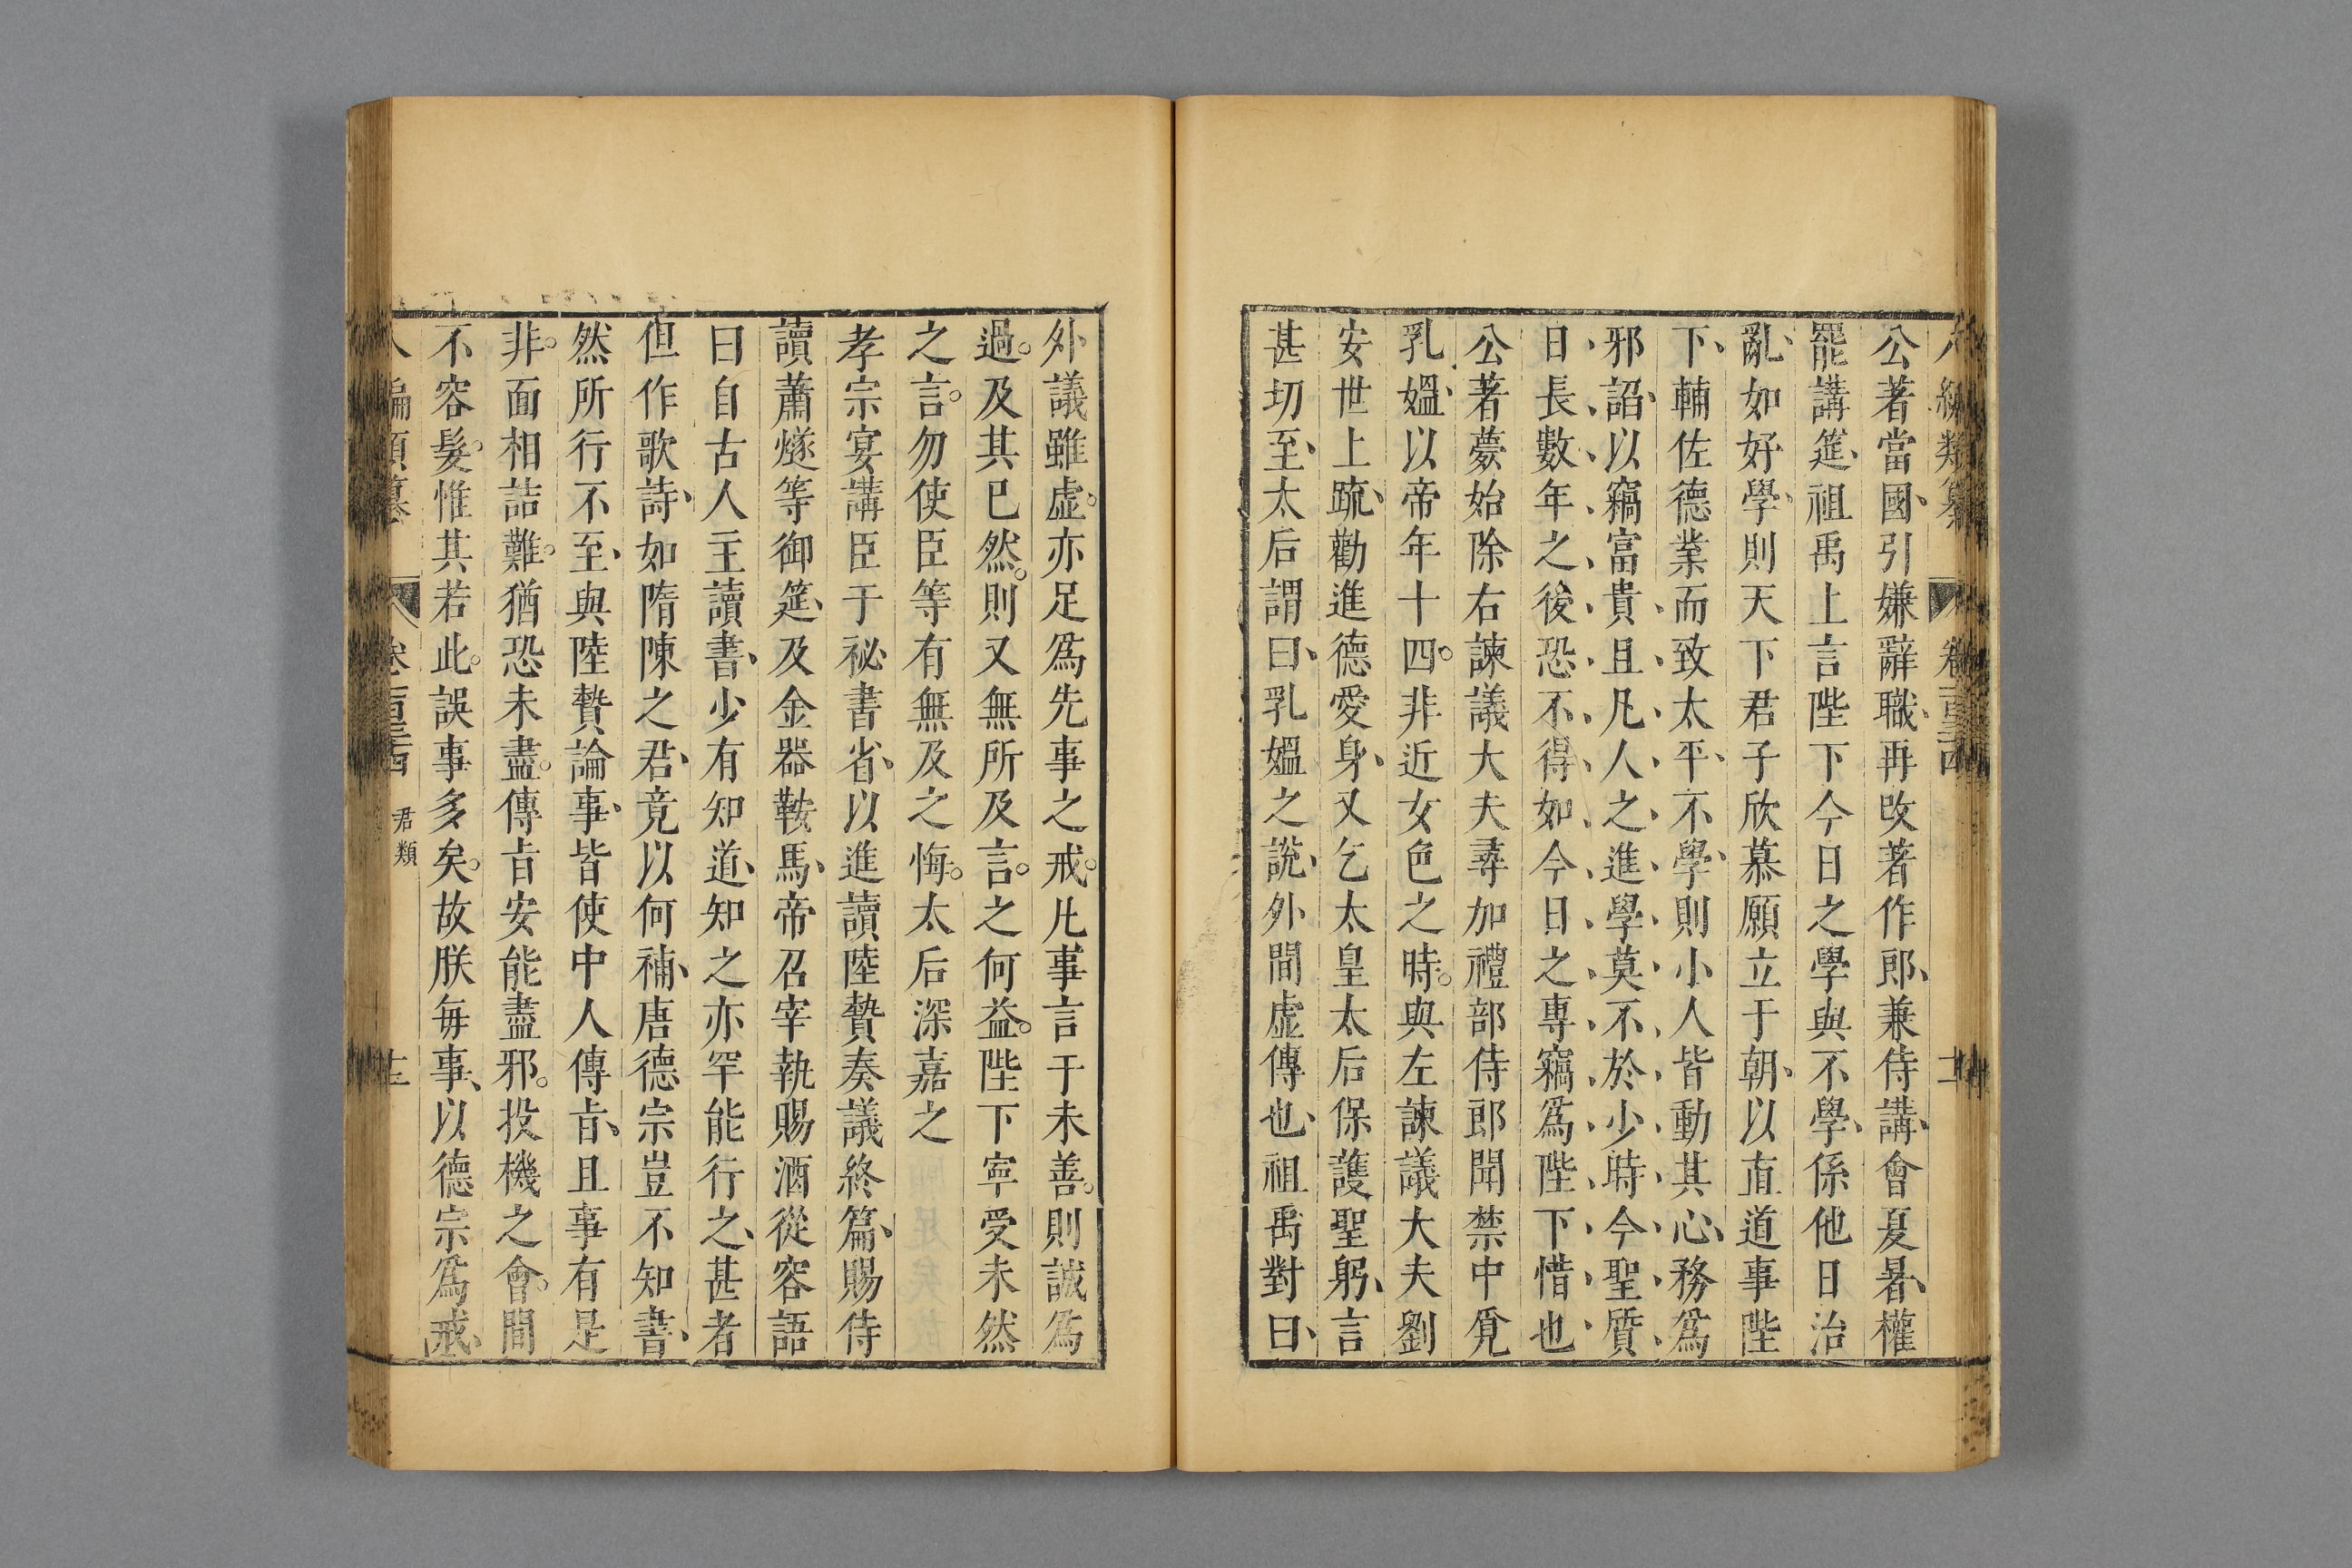 公著當國引嫌辭職再改著作郎兼侍講會夏暑權
罷講筵祖禹上言陛下今日之學與不學係他日治
亂如好學則天下君子欣慕願立于朝以直道事陛
下輔佐德業而致太平不學則小人皆動其心務爲
邪謟以竊富貴且凡人之進學莫不於少時今聖質
日長數年之後恐不得如今日之專竊爲陛下惜也
公著薨始除右諫議大夫尋加禮部侍郎聞禁中覓
乳媼以帝年十四非近女色之時與左諫議大夫劉
安世上疏勸進德愛身又乞太皇太后保護聖躬言
甚切至太后謂曰乳媼之說外間虛傳也祖禹對曰
外議雖虛亦足爲先事之戒凡事言于未善則誠爲
過及其已然則又無所及言之何益陛下寜受未然
之言勿使臣等有無及之悔太后深嘉之
孝宗宴講臣于祕書省以進讀陸贄奏議終篇賜侍
讀蕭燧等御筵及金器鞍馬帝召宰執賜酒從容語
曰自古人主讀書少有知道知之亦罕能行之甚者
但作歌詩如隋陳之君竟以何補唐德宗豈不知書
然所行不至與陸贄論事皆使中人傳㫖且事有是
非面相詰難猶恐未盡傳㫖安能盡邪投機之會間
不容髮惟其若此誤事多矣故朕每事以德宗爲戒
君類